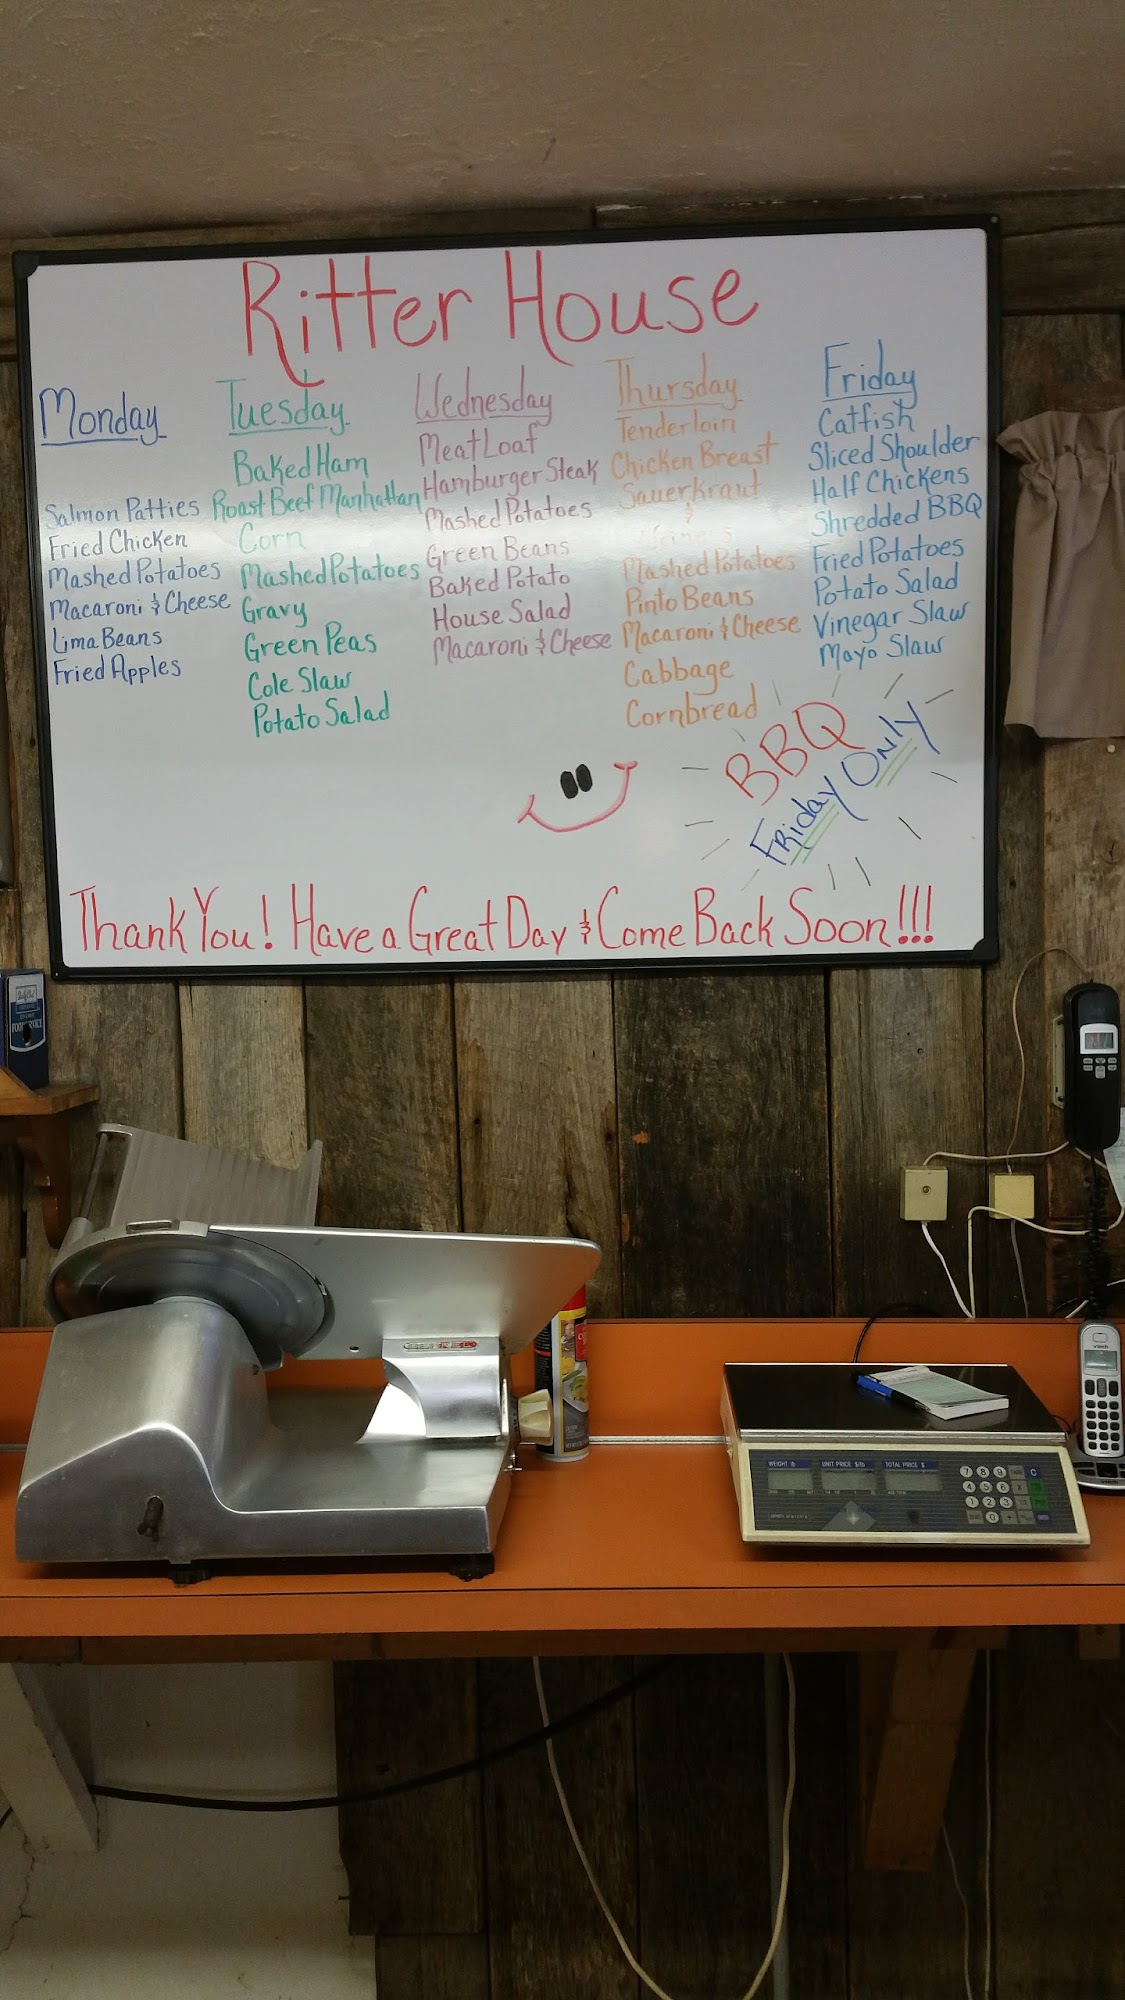 Ritter House
Monday
Salmon Patties
Fried Chicken
Mashed Potatoes
Macaroni & Cheese
Lima Beans
Fried Apples
Tuesday
Baked Ham
Roast Beef Manhattan
Corn
Mashed Potatoes
Gravy
Green Peas
Cole Slaw
Potato Salad
Wednesday
Meat Loaf
Hamburger Steak
Mashed Potatoes
Green Beans
Baked Potato
House Salad
Macaroni & Cheese
Thursday
Tenderloin
Chicken Breast
Sauerkraut
&
Mashed Potatoes
Pinto Beans
Macaroni & Cheese
Cabbage
Cornbread
Friday
Catfish
Sliced Shoulder
Half Chickens
Shredded BBQ
Fried Potatoes
Potato Salad
Vinegar Slaw
Mayo Slaw
BBQ
Friday Only
Thank You! Have a Great Day & Come Back Soon!!!
WEIGHT lb
UNIT PRICE $/lb
TOTAL PRICE $
7 8 9
4 5 6
1 2 3
0
C
vtech